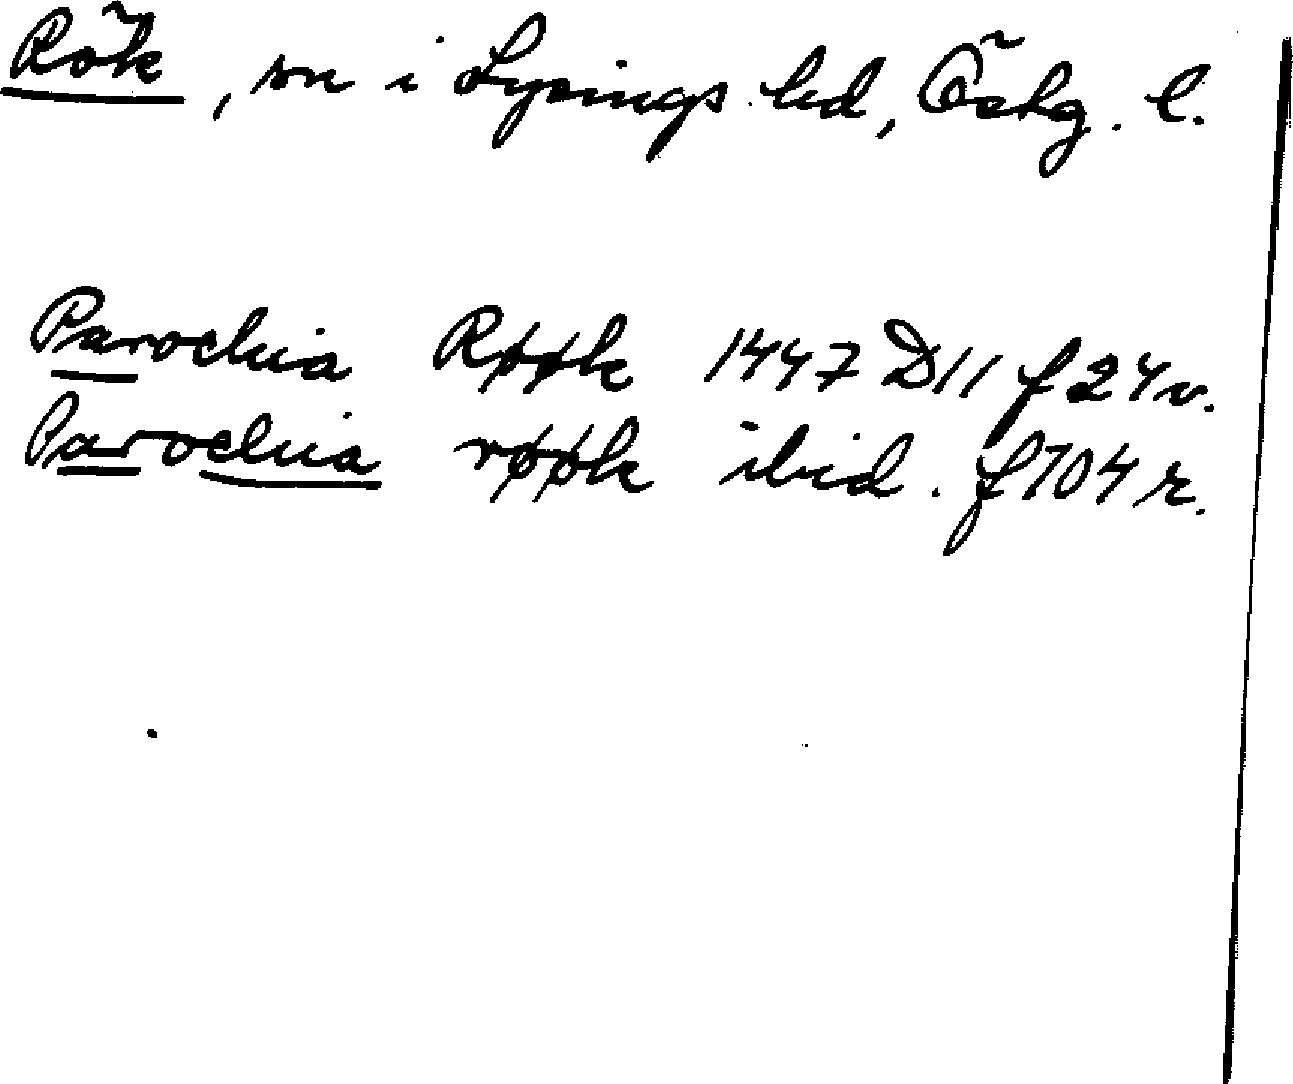 Rök, sn i Lysings hd, Östg. l.
Parochia Røøk 1447 D11 f 24 v.
Parochia røøk ibid. f 104 r.